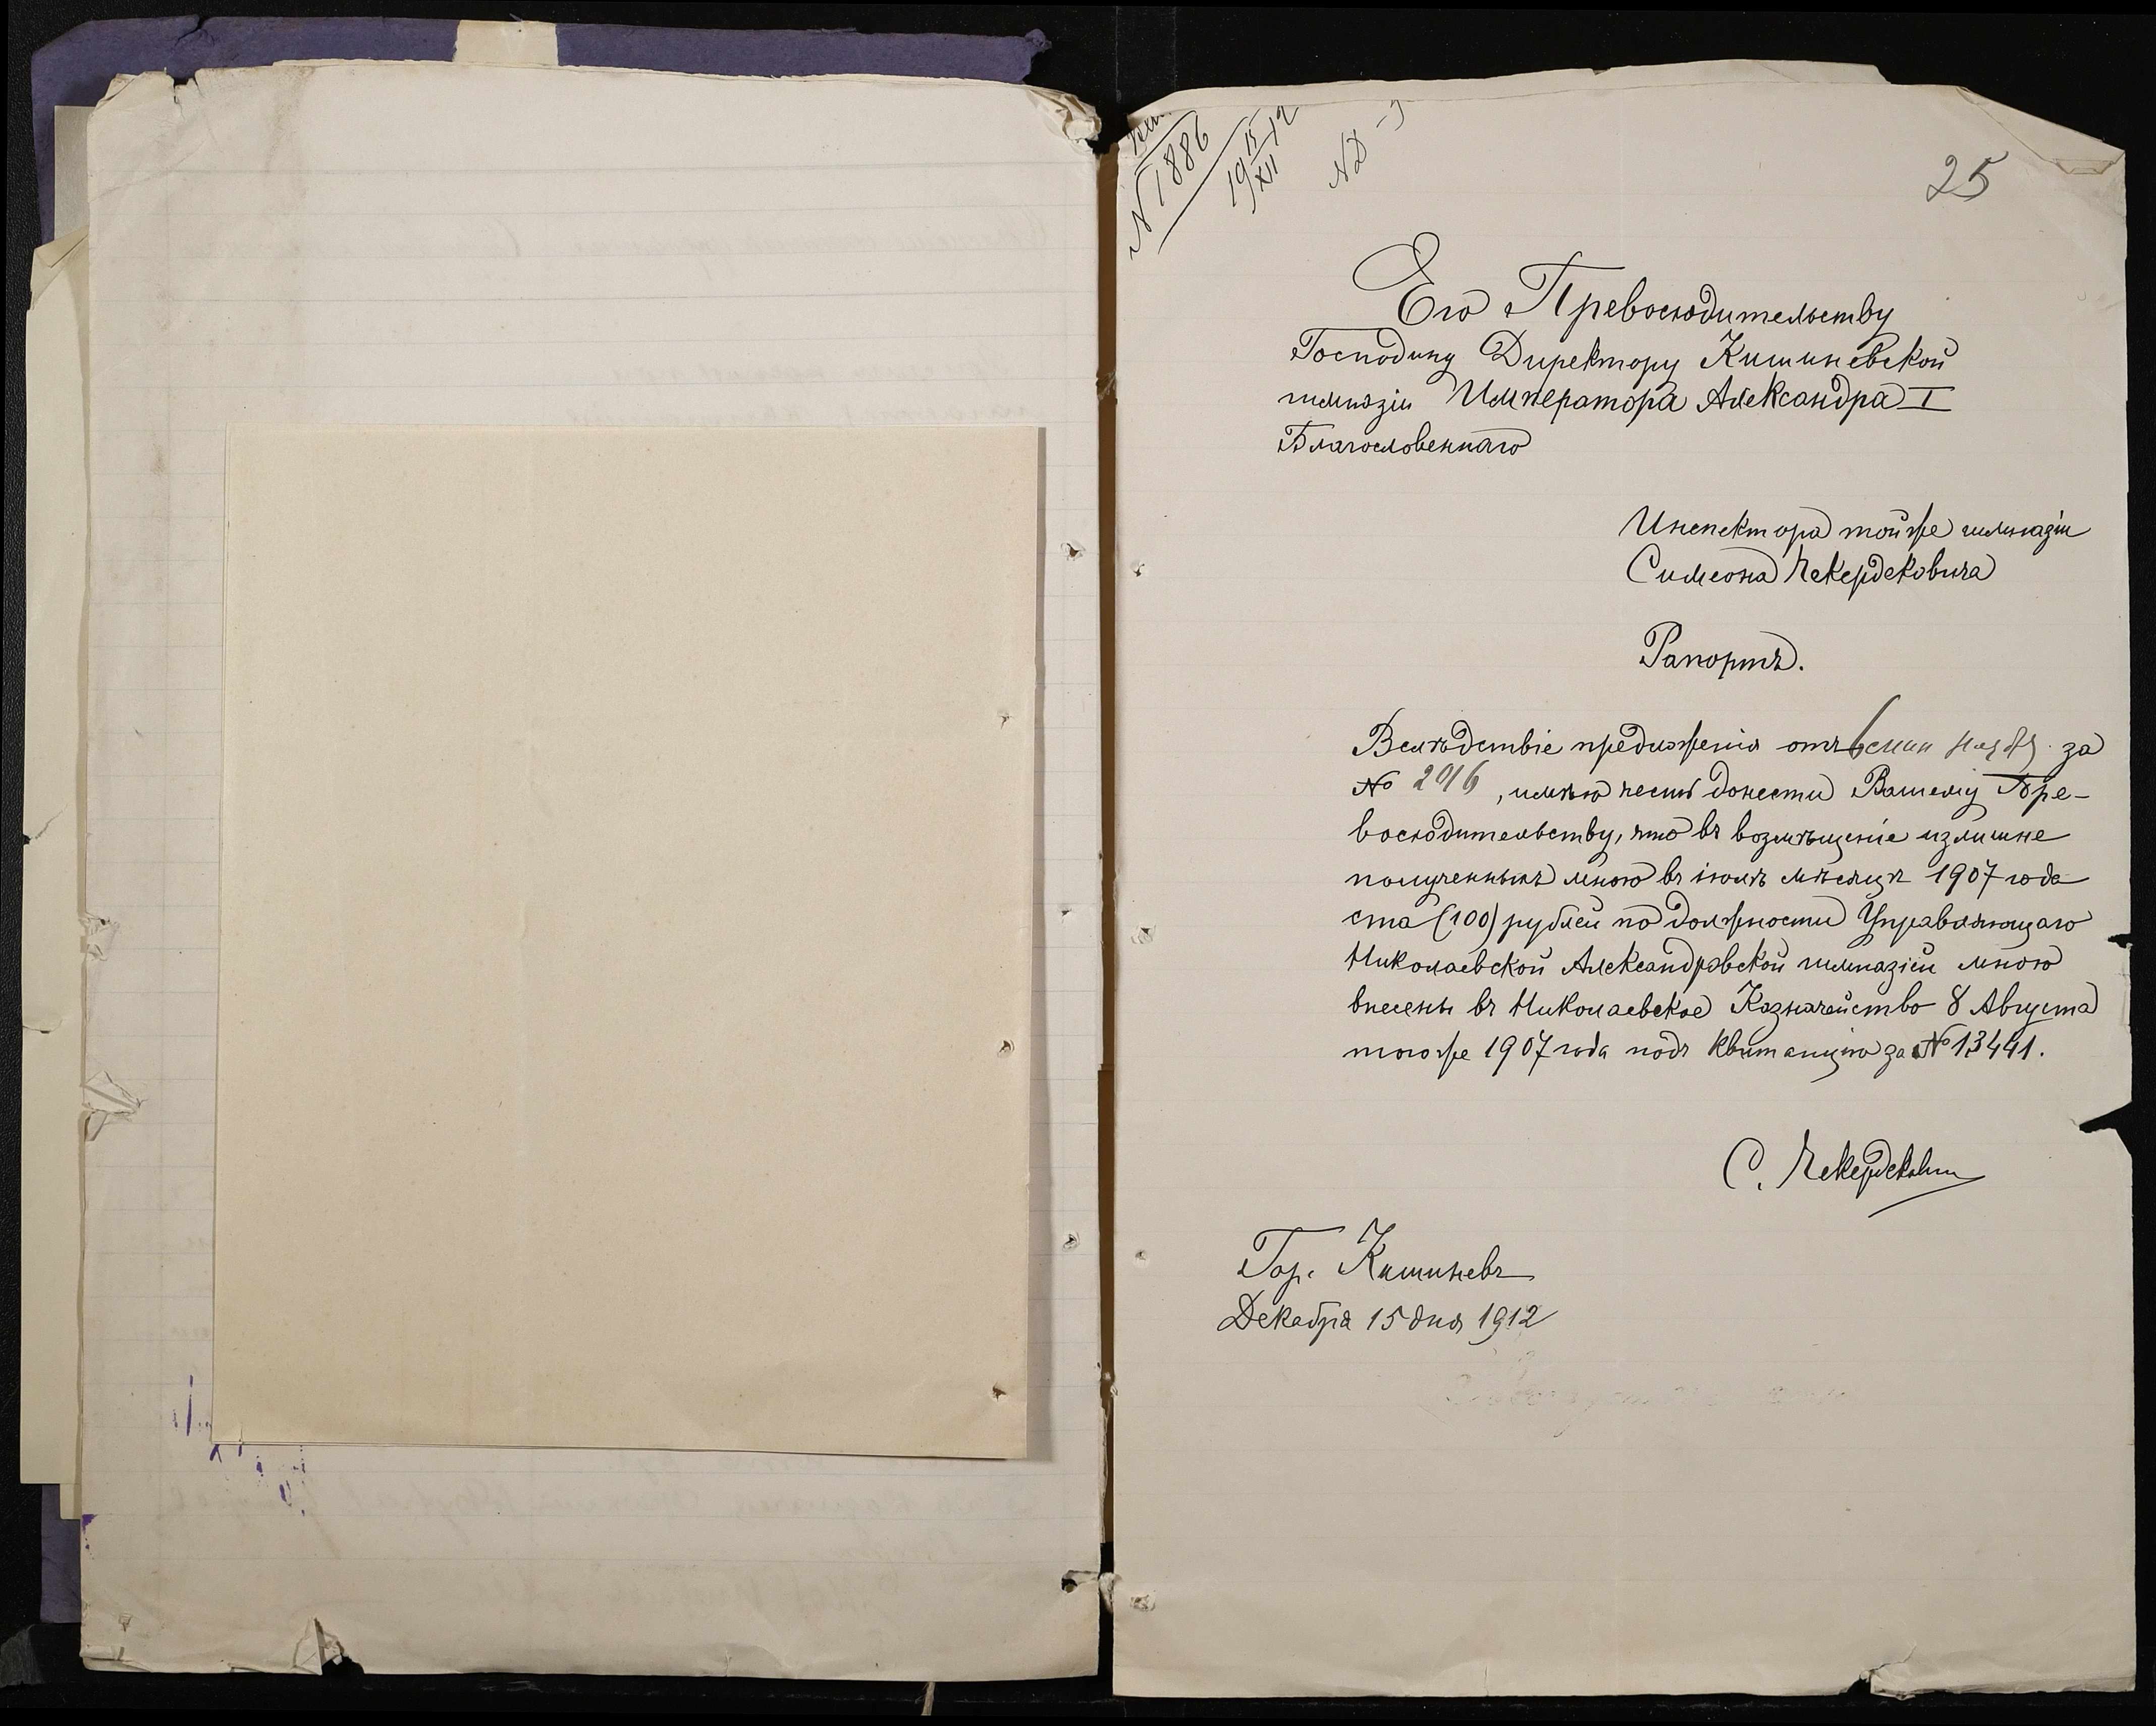 № 1886
19 15/XII 12
25
Его Превосходительству
Господину Директору Кишиневской
гимназіи Императора Александра I
Благословеннаго
Инспектора той же гимназіи
Симеона Чекердековича
Рапортъ.
Вслѣдствіе предложенія отъ за
№ 2916, имѣю честь донести Вашему Пре-
восходительству, что въ возмѣщеніе излишне
полученныхъ мною въ іюлѣ мѣсяцѣ 1907 года
ста (100) рублей по должности Управляющаго
Николаевской Александровской гимназіей мною
внесены въ Николаевское Казначейство 8 Августа
того же 1907 года подъ квитанцію за № 13441.
С. Чекердекович
Гор. Кишиневъ
Декабря 15 дня 1912